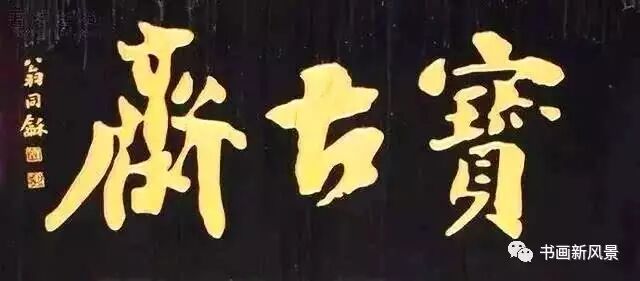 寶古齋
翁同龢
书画新风景